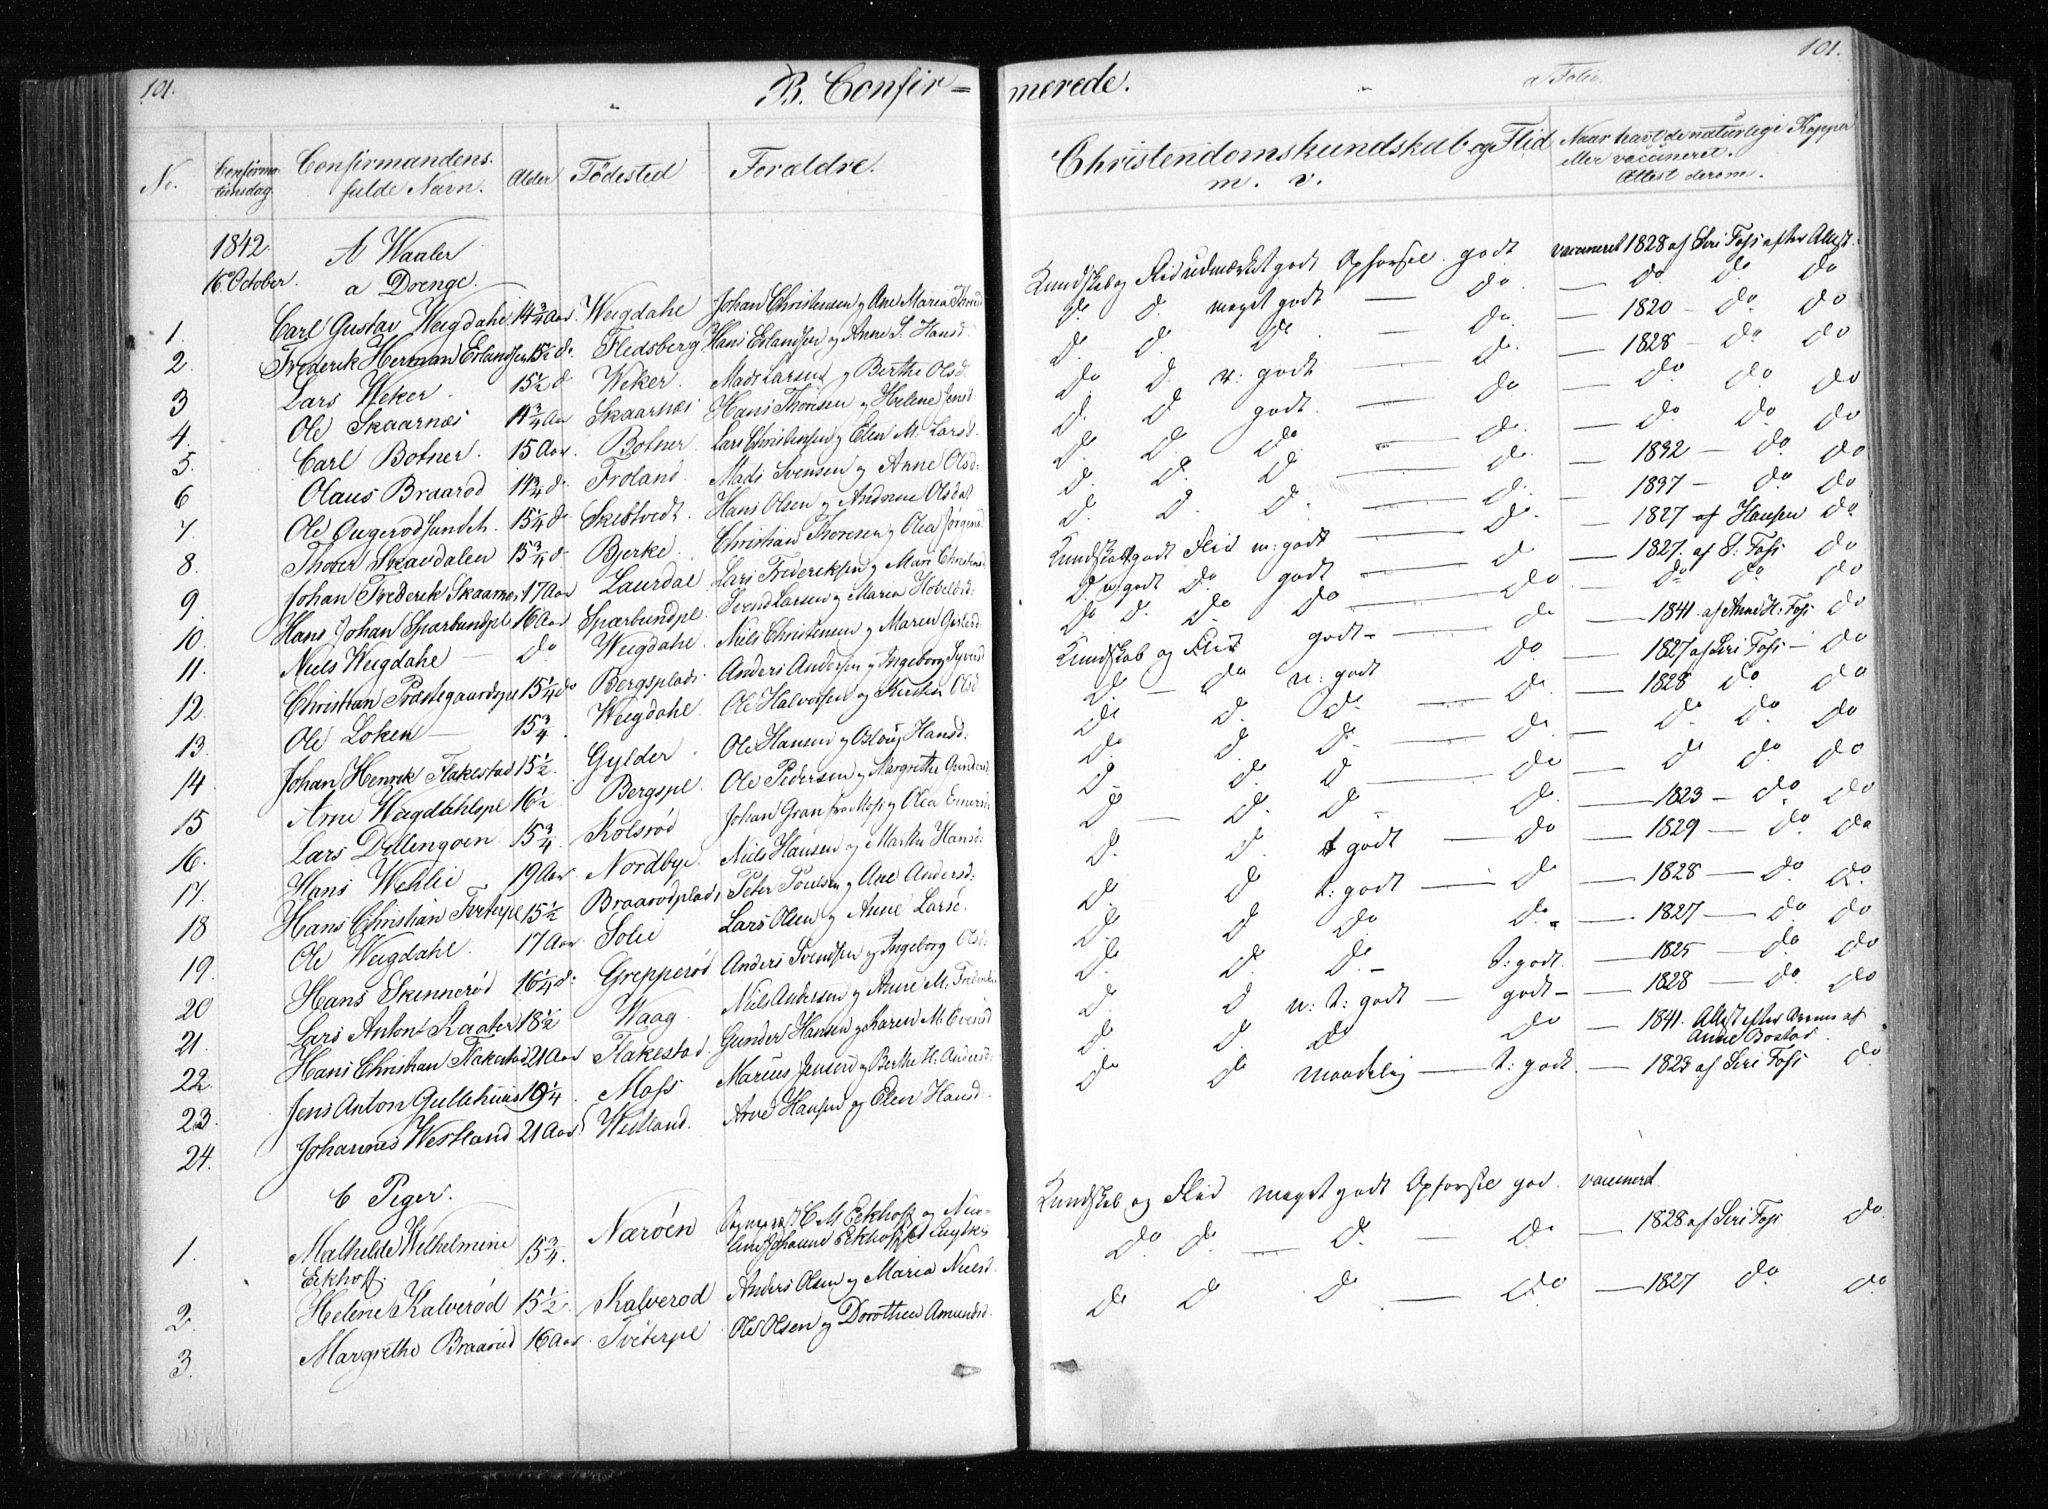 101.
B. Confir=
merede.
101.
a Folio
No.
Confirma-
tionsdag
Confirmandens
fulde Navn.
Alder
Födested
Foraldre.
Christendomskundskab og Flid
m. v.
Naar havt de naturlige Kopper
eller vaccineret.
Attest derom.
1842.
16 October.
A Waaler
a Drenge.
1. Carl Gustav Weigdahl 14 3/4 Aar. Weigdahl Johan Christensen og Ane Maria
Kundskab og Flid udmærket godt Opførsel godt vaccineret 1828 af Siri Foss efter Attest.
2. Frederik Herman Erlandsen 15 1/2 do Fledsberg Hans Erlandsen og Anne S. Hansd.
do. do. meget godt — do. — do do do
3 Lars Weker. 15 1/2 d Weker. Mads Larsen og Berthe Olsd.
do. do. do. — do. — 1820 — do do
4. Ole Skaarnæs 14 3/4 Aar Skaarnæs Hans Thoresen og Helene Jensd.
do do. m: godt — do. — 1828 — do do
5. Carl Botner. 15 Aar. Botner. Lars Christensen og Elen M. Larsd.
do. do godt. — do — do do do
6 Olaus Braarod 14 3/4 d. Froland. Mads Svensen og Anne Olsd:
do. do. do. — do. — do do do
7. Ole Augerodsundet. 15 1/4 do Skibtvedt. Hans Olsen og Andrine Olsdat
do. do. do — do. — 1832 — do do
8. Thorer Skavdalen 15 3/4 d. Bjerke. Christian Thoresen og Olea Jørgensd
do. do. do. — do. — 1837 — do. do
9. Johan Frederik Skaarnæs 17 Aar Laurdal Lars Frederiksen og Mari
Kundskab godt Flid m: godt — do — 1827 af Hansen do
10. Hans Johan Sparbundpl 16 Aar Sparbundpl. Svend Larsen og Maria
do m: godt do. godt — do — 1827. af S: Foss do
11. Niels Weigdahl — do Weigdahl. Niels Christensen og Maren
do do. do. do — do — do do do
12 Christian Præstegaardspl 15 1/4 do Bergsplads. Anders Andersen og Ingeborg
Kundskab og Flid godt — do — 1841 af Anne H. Foss do
13. Ole Loken — 15 3/4 Weigdahl. Ole Halvorsen og Kirstin Olsd
do. — do m: godt do. — 1827 af Siri Foss — do
14 Johan Henrik Flakestad 15 1/2. Gylder. Ole Hansen og Asloug Hansd:
do do. do. — do. — 1828 do do
15 Arne Weigdahlspl 16 1/2 Bergspl. Ole Pedersen og Margrethe
do. do. do — do. — do. do. do
16. Lars Dillengoen 15 3/4 Kolsrød Johan Gran fra Moss og Olea
do do. do — do — do do. do
17. Hans Wehlie 19 Aar Nordbye. Niels Hansen og Marthe Hansd:
do — do. do. — do. — 1823 — do. do
18 Hans Christian Tveterpl 15 1/2 Braarodplads Peter Poulsen og Ane Andersd:
do. do. t godt — do — 1829 — do. do
19. Ole Weigdahl. 17 Aar Solie Lars Olsen og Anne Larsd.
do. do t: godt — do — 1828 — do. do.
20 Hans Skinnerød 16 1/4 d. Grepperød Anders Svendsen og Ingeborg Olsd:
do. do do do. — 1827 — do do
21. Lars Anton Kaater 18 1/2 Waag. Niels Andersen og Anne M.
do. do. do — t: godt. — 1825 — do do
22. Hans Christian Flakestad 21 Aar Flakestad. Gunder Hansen og Karen M.
do. do n: t: godt — godt — 1828 — do. do
23. Jens Anton Gullehuus 19 1/4. Moss Marius Jensen og Berthe H. Andersd:
do. do. do do — 1841. Attest efter af
Anne Bostad.
24. Johannes Westland 21 Aar Westland. Arne Hansen og Elen Hansd.
do do maadelig — t: godt. — 1823 af Siri Foss do
C Piger.
1. Mathilde Wilhelmine
Eckhoff. 15 3/4. Nærøen C M Eckhoff og
Johanne Eckhoff
Kundskab og Flid meget godt Opførsel god. vaccineret
do. do. — do. — do. — 1828 af Siri Foss do.
2. Helene Kalverød 15 1/2 Kalverod Anders Olsen og Maria Nielsd.
do do do — do — 1827 do. do
3. Margrethe Braarud 16 Aar. Tveterpl Ole Olsen og Dorothea Amundsd.